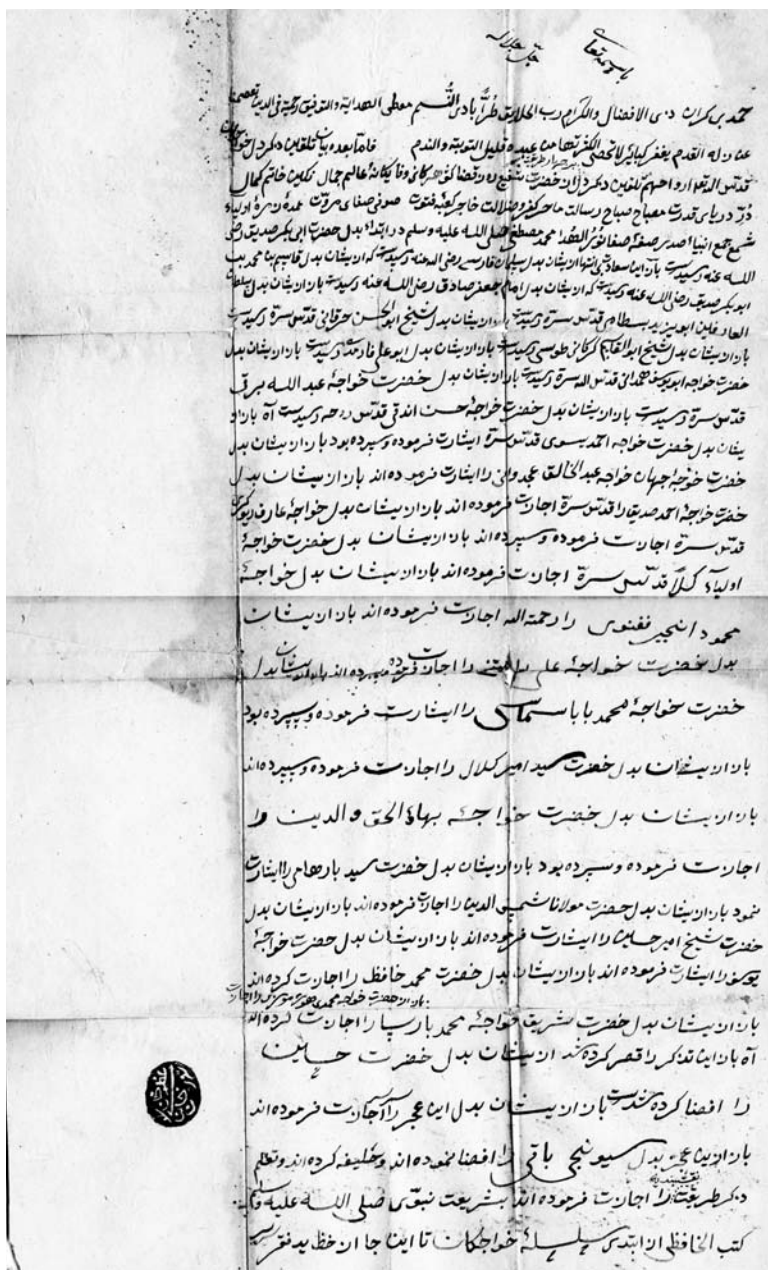 باسمه تعالی
جل جلاله
حمد بی کران ذی الافضال والاکرام رب الخلایق طُرّاً بادئ النُّسم معطی الهدایة والتوفیق
عبیده قلیل التوبة والندم فامّا بعده بیان تلقین ذکر دل
تلقین ذکر دل از حضرت
دُرِّ دریای قدرت مصباح صباح رسالت ماحی کفر وضلالت کعبهٔ فتوت صوفی صفای مروت
شمع جمع انبیا صدر صفهٔ صفا نور الهدا محمد مصطفی صلی الله علیه وسلم در ابتداء بدل حضرت ابی بکر صدیق رضی
الله عنه رسیدست باز ازیشان بدل سلمان فارسی رضی الله عنه رسیدست که ازیشان بدل قاسم بن محمد بن
ابوبکر صدیق رضی الله عنه رسیدست که ازیشان بدل امام جعفر صادق رضی الله عنه رسیدست باز ازیشان بدل سلطان
العارفین ابویزید بسطامی قدس سره رسیدست باز ازیشان بدل شیخ ابو الحسن خرقانی قدس سره رسیدست
باز ازیشان بدل شیخ ابو القاسم کرکانی طوسی رسیدست باز ازیشان بدل ابو علی فارمدی رسیدست باز ازیشان بدل
حضرت خواجه ابو یوسف همدانی قدس الله سره رسیدست باز ازیشان بدل حضرت خواجهٔ عبد الله برقی
قدس سره رسیدست باز ازیشان بدل حضرت خواجهٔ حسن اندقی قدس روحه رسیدست آه باز از
یشان بدل حضرت خواجه احمد یسوی قدس سره ایشارت فرموده وسپرده بود باز ازیشان بدل
حضرت خوجهٔ جهان خواجه عبد الخالق غجدوانی را ایشارت فرموده اند باز ازیشان بدل
حضرت خواجهٔ احمد صدیق را قدس سره اجازت فرموده اند باز ازیشان بدل خواجهٔ عارف ریوکری
قدس سره اجازت فرموده وسپرده اند باز ازیشان بدل حضرت خواجهٔ
اولیاء کلاً قدس سره اجازت فرموده اند باز ازیشان بدل خواجهٔ
محمود انجیر فغنوی را رحمة الله اجازت فرموده اند باز ازیشان
بدل حضرت خواجهٔ علی رامتنی را اجازت فرموده سپرده اند باز ازیشان بدل
حضرت خواجهٔ محمد بابا سماسی را ایشارت فرموده وسپرده بود
باز ازیشان بدل حضرت سید امیر کلال را اجازت فرموده وسپرده اند
باز ازیشان بدل حضرت خواجهٔ بهاء الحق والدین را
اجازت فرموده وسپرده بود باز ازیشان بدل حضرت سید را ایشارت
نمود باز ازیشان بدل حضرت مولانا شمس الدین را اجازت فرموده اند باز ازیشان بدل
حضرت شیخ امیر حسین را ایشارت فرموده اند باز ازیشان بدل حضرت خواجهٔ
یوسف را ایشارت فرموده اند باز ازیشان بدل حضرت محمد حافظ را اجازت کرده اند
باز ازیشان بدل حضرت شریف خواجهٔ محمد پارسا را اجازت کرده اند
آه باز این تذکر را قصر کرده شد ازیشان بدل حضرت حسین
را افضا کرده شدست باز ازیشان بدل این عجر را اجازت فرموده اند
باز ازین عجر بدل سیونجی باقی را افضا نموده اند وخلیفه کرده اند وتعلم
ذکر طریقت را اجازت فرموده اند بشریعت نبوی صلی الله علیه
کتب الحافظی از ابتدی سلسلهٔ خواجکان تا اینجا از خط ید فقیر